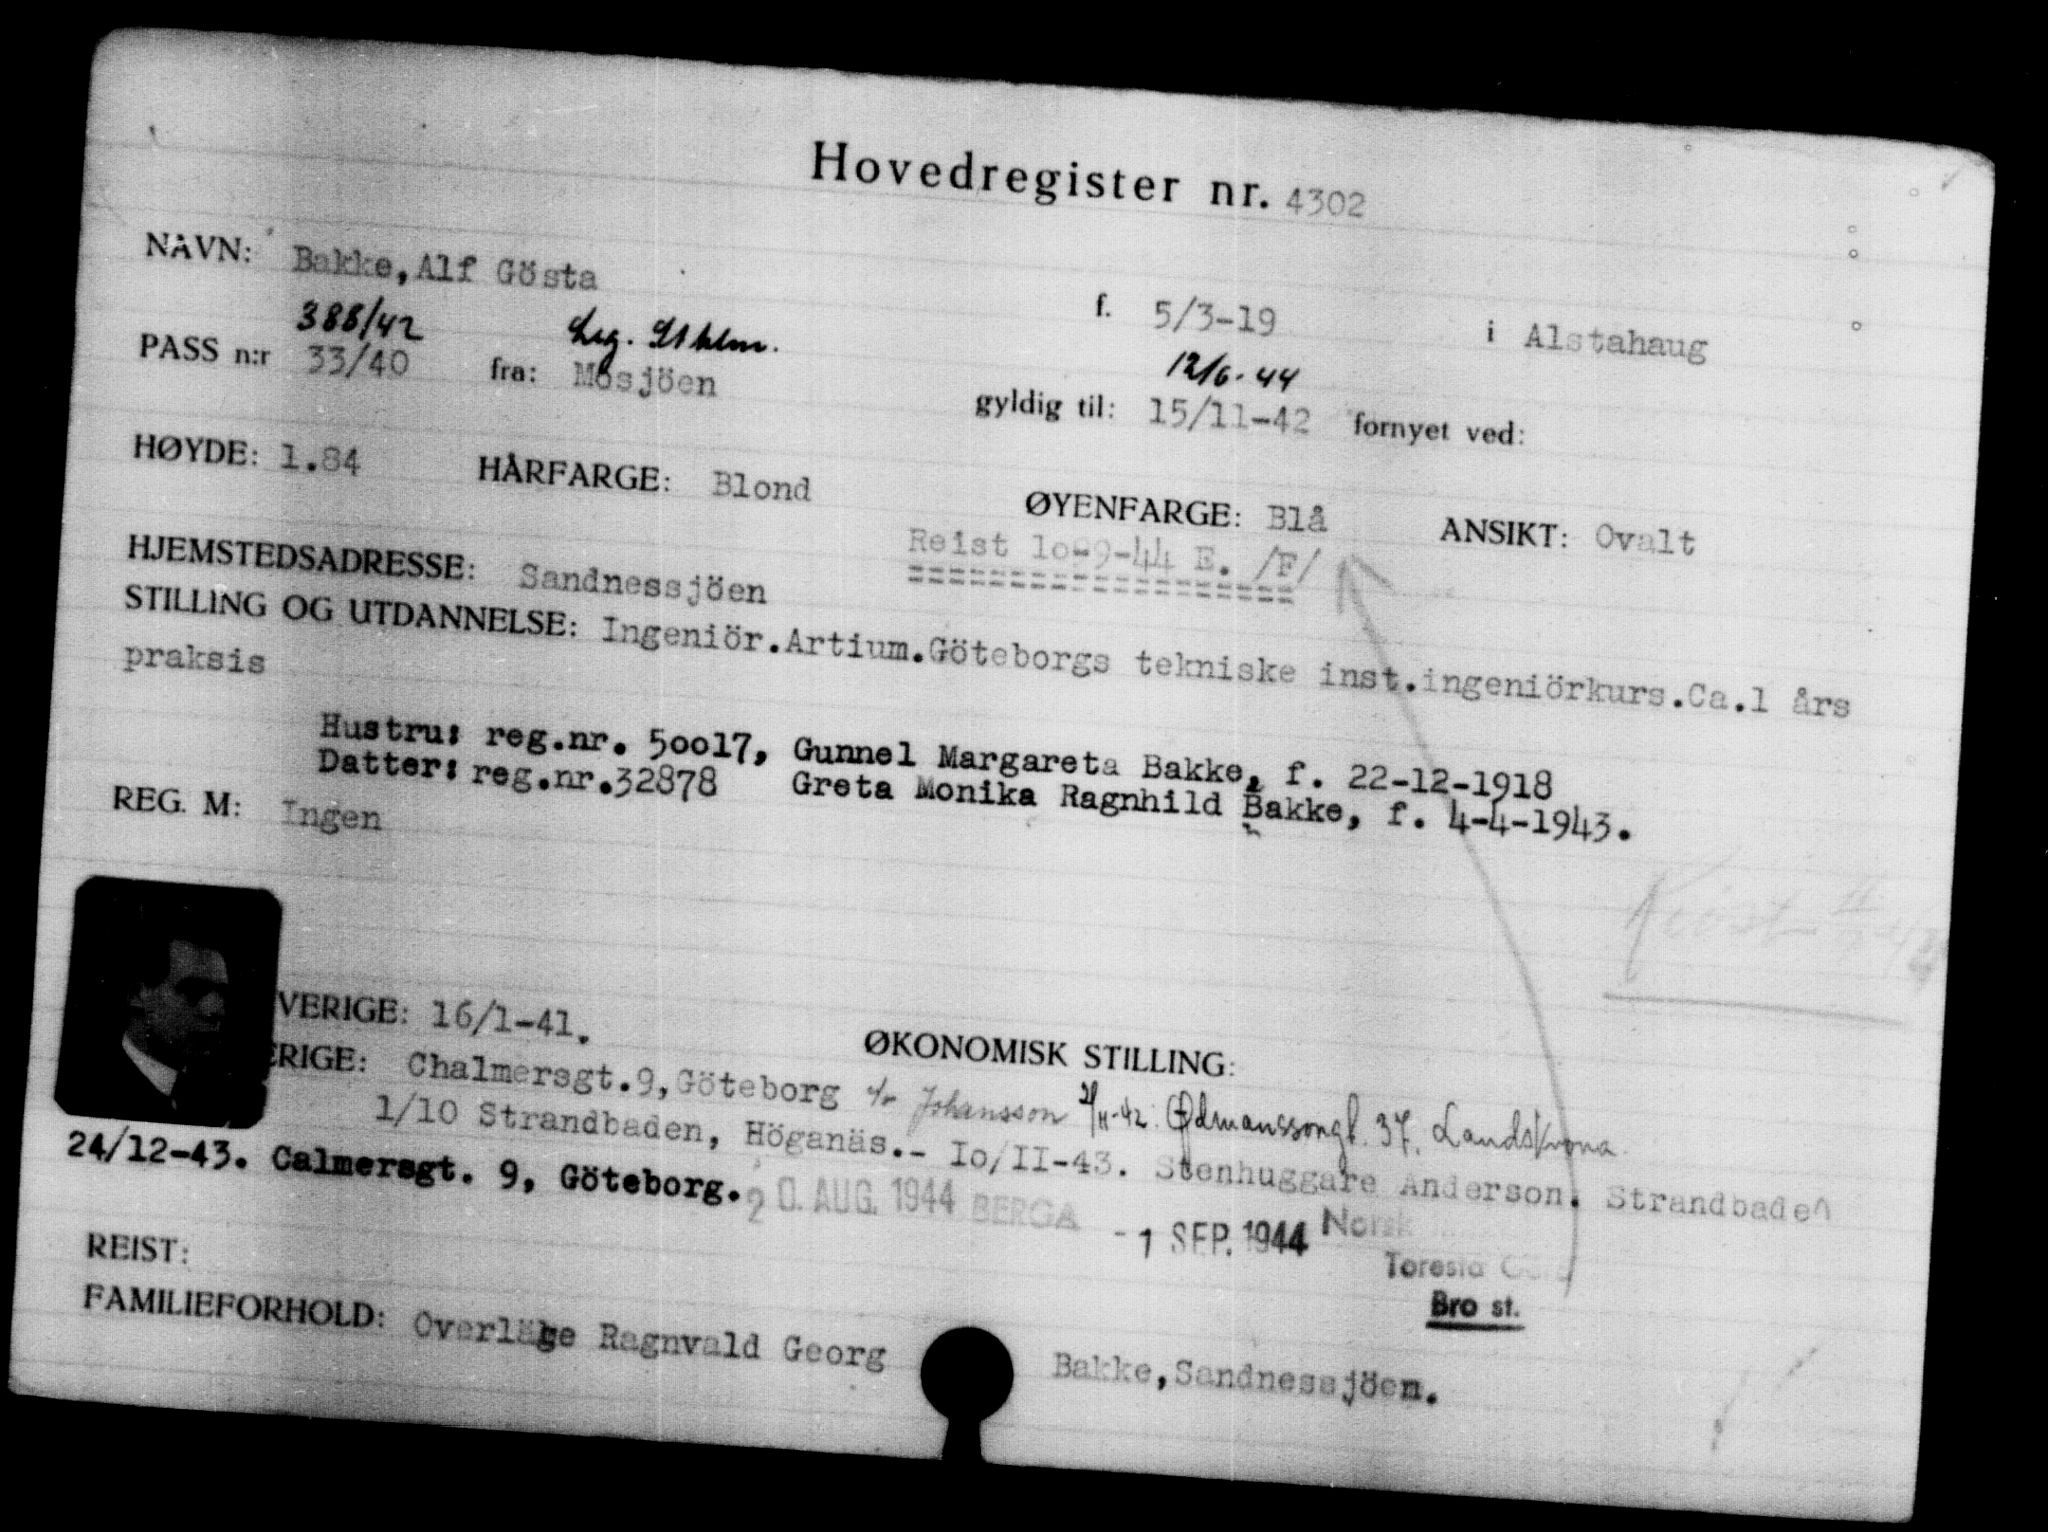 Hovedregister nr. 4302
NAVN: Bakke, Alf Gösta f. 5/3-19 i Alstahaug
388/42 Leg. Sthlm. 12/6-44
PASS n:r 33/40 fra: Mosjöen gyldig til: 15/11-42 fornyet ved:
HØYDE: 1.84 HÅRFARGE: Blond ØYENFARGE: Blå ANSIKT: Ovalt
Reist 1o-9-44 E. /F/
HJEMSTEDSADRESSE: Sandnessjöen
STILLING OG UTDANNELSE: Ingeniör.Artium.Göteborgs tekniske inst.ingeniörkurs.Ca.1 års
praksis
Hustru: reg.nr. 50017, Gunnel Margareta Bakke, f. 22-12-1918
Datter: reg.nr.32878 Greta Monika Ragnhild Bakke, f. 4-4-1943.
REG. M: Ingen
VERIGE: 16/1-41. ØKONOMISK STILLING:
ERIGE: Chalmersgt.9, Göteborg c/o Johansson Ødmanssongt. 37, Landskrona.
1/10 Strandbaden, Höganäs.- Io/II-43. Stenhuggare Anderson. Strandbaden
24/12-43. Calmersgt. 9, Göteborg.
20. AUG. 1944 BERGA -1 SEP. 1944 Norsk
Toresta
Bro st.
REIST:
FAMILIEFORHOLD: Overläge Ragnvald Georg Bakke, Sandnessjöen.